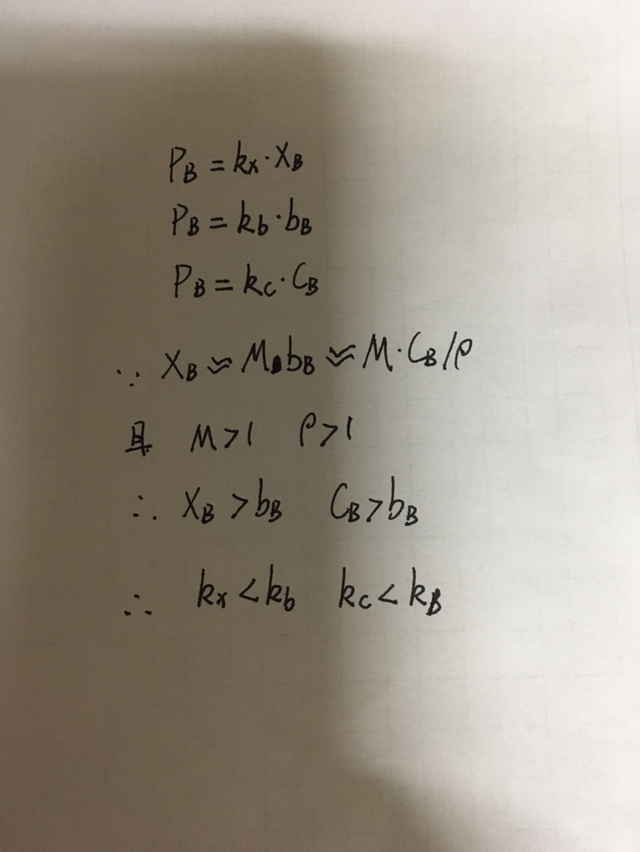 P_B = k_x · X_B
P_B = k_b · b_B
P_B = k_c · C_B
∵ X_B ≈ M · b_B ≈ M · C_B / ρ
且 M > 1 ρ > 1
∴ X_B > b_B C_B > b_B
∴ k_x < k_b k_c < k_B